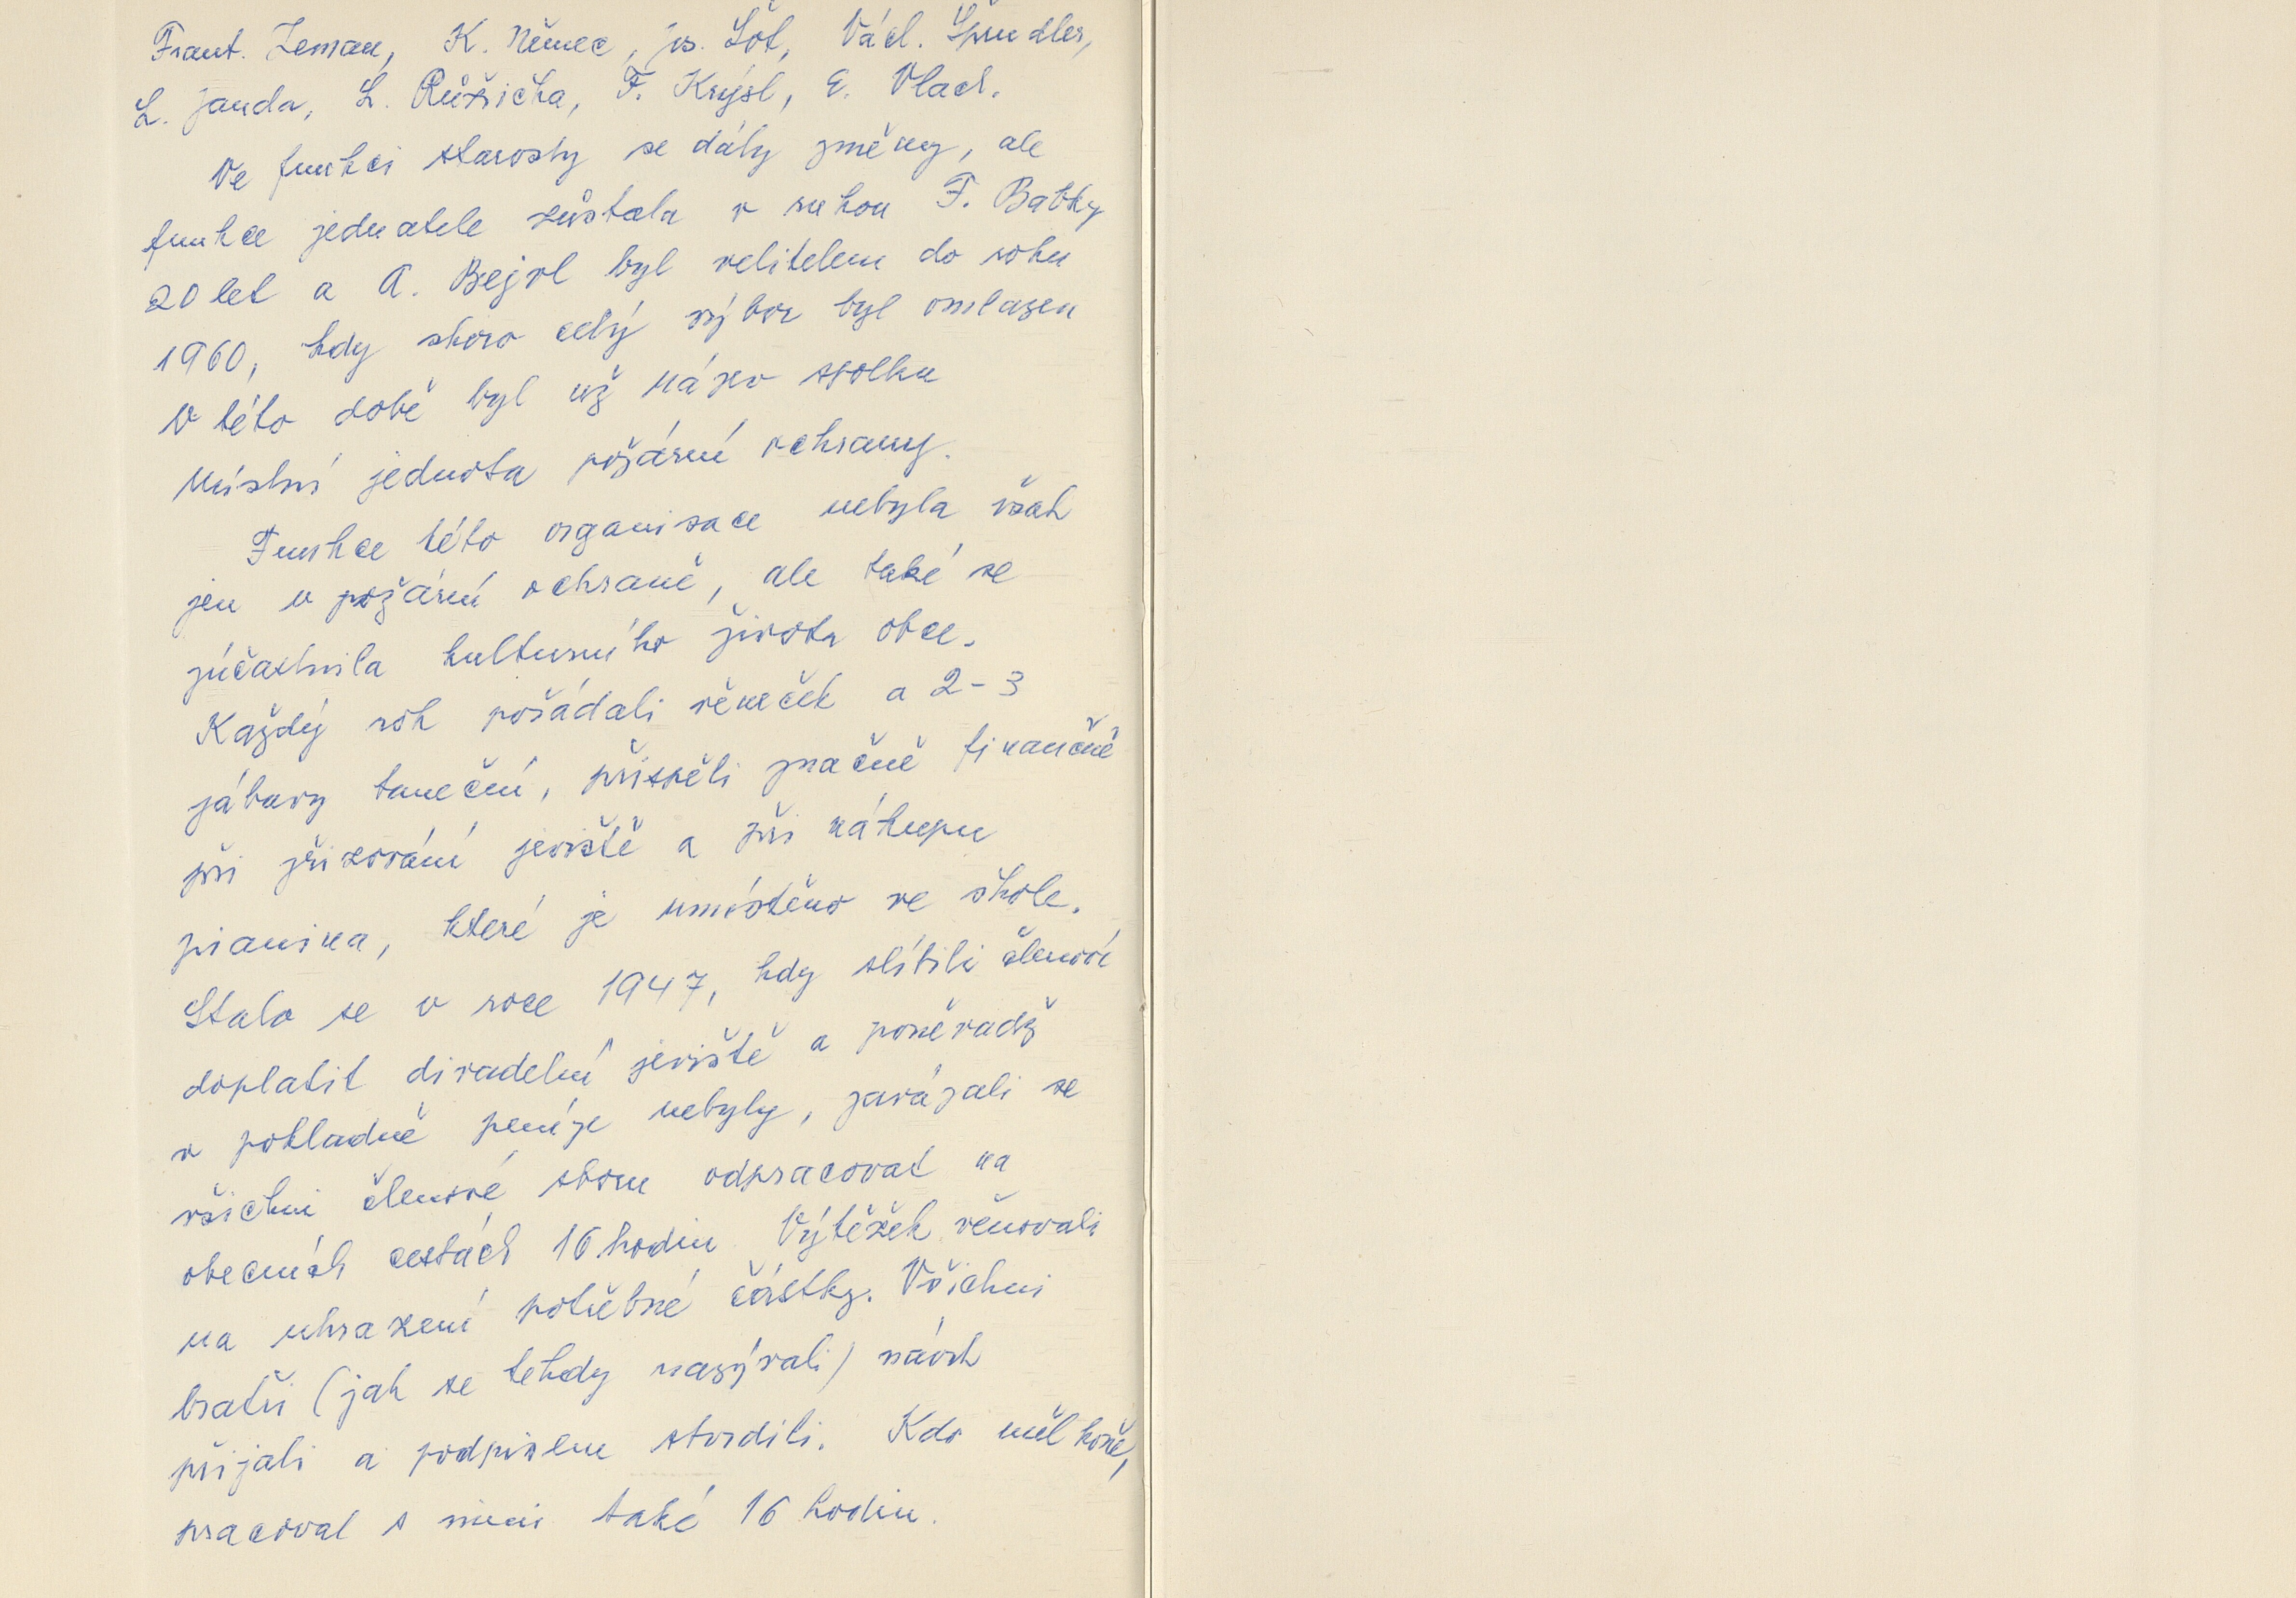 Frant. Zeman, K. Němec, Jos. Šót, Václ. Špindler,
L. Janda, L. Růžička, F. Krýsl, E. Vlach.
Ve funkci starosty se dály změny, ale
funkce jednatele zůstala v rukou F. Babky
20 let a A. Bejvl byl velitelem do roku
1960, kdy skoro celý výbor byl omlazen
V této době byl už název spolku
Místní jednota požární ochrany.
Funkce této organisace nebyla však
jen v požární ochraně, ale také se
zúčastnila kulturního života obce.
Každý rok pořádali věneček a 2-3
zábavy taneční, přispěli značně finančně
při zřizování jeviště a při nákupu
pianina, které je umístěno ve škole.
Stalo se v roce 1947, kdy slíbili členové
doplatit divadelní jeviště a poněvadž
v pokladně peníze nebyly, zavázali se
všichni členové sboru odpracovat na
obecních cestách 16 hodin Výtěžek věnovali
na uhrazení potřebné částky. Všichni
bratři (jak se tehdy nazývali) návrh
přijali a podpisem stvrdili. Kdo měl koně,
pracoval s nimi také 16 hodin.